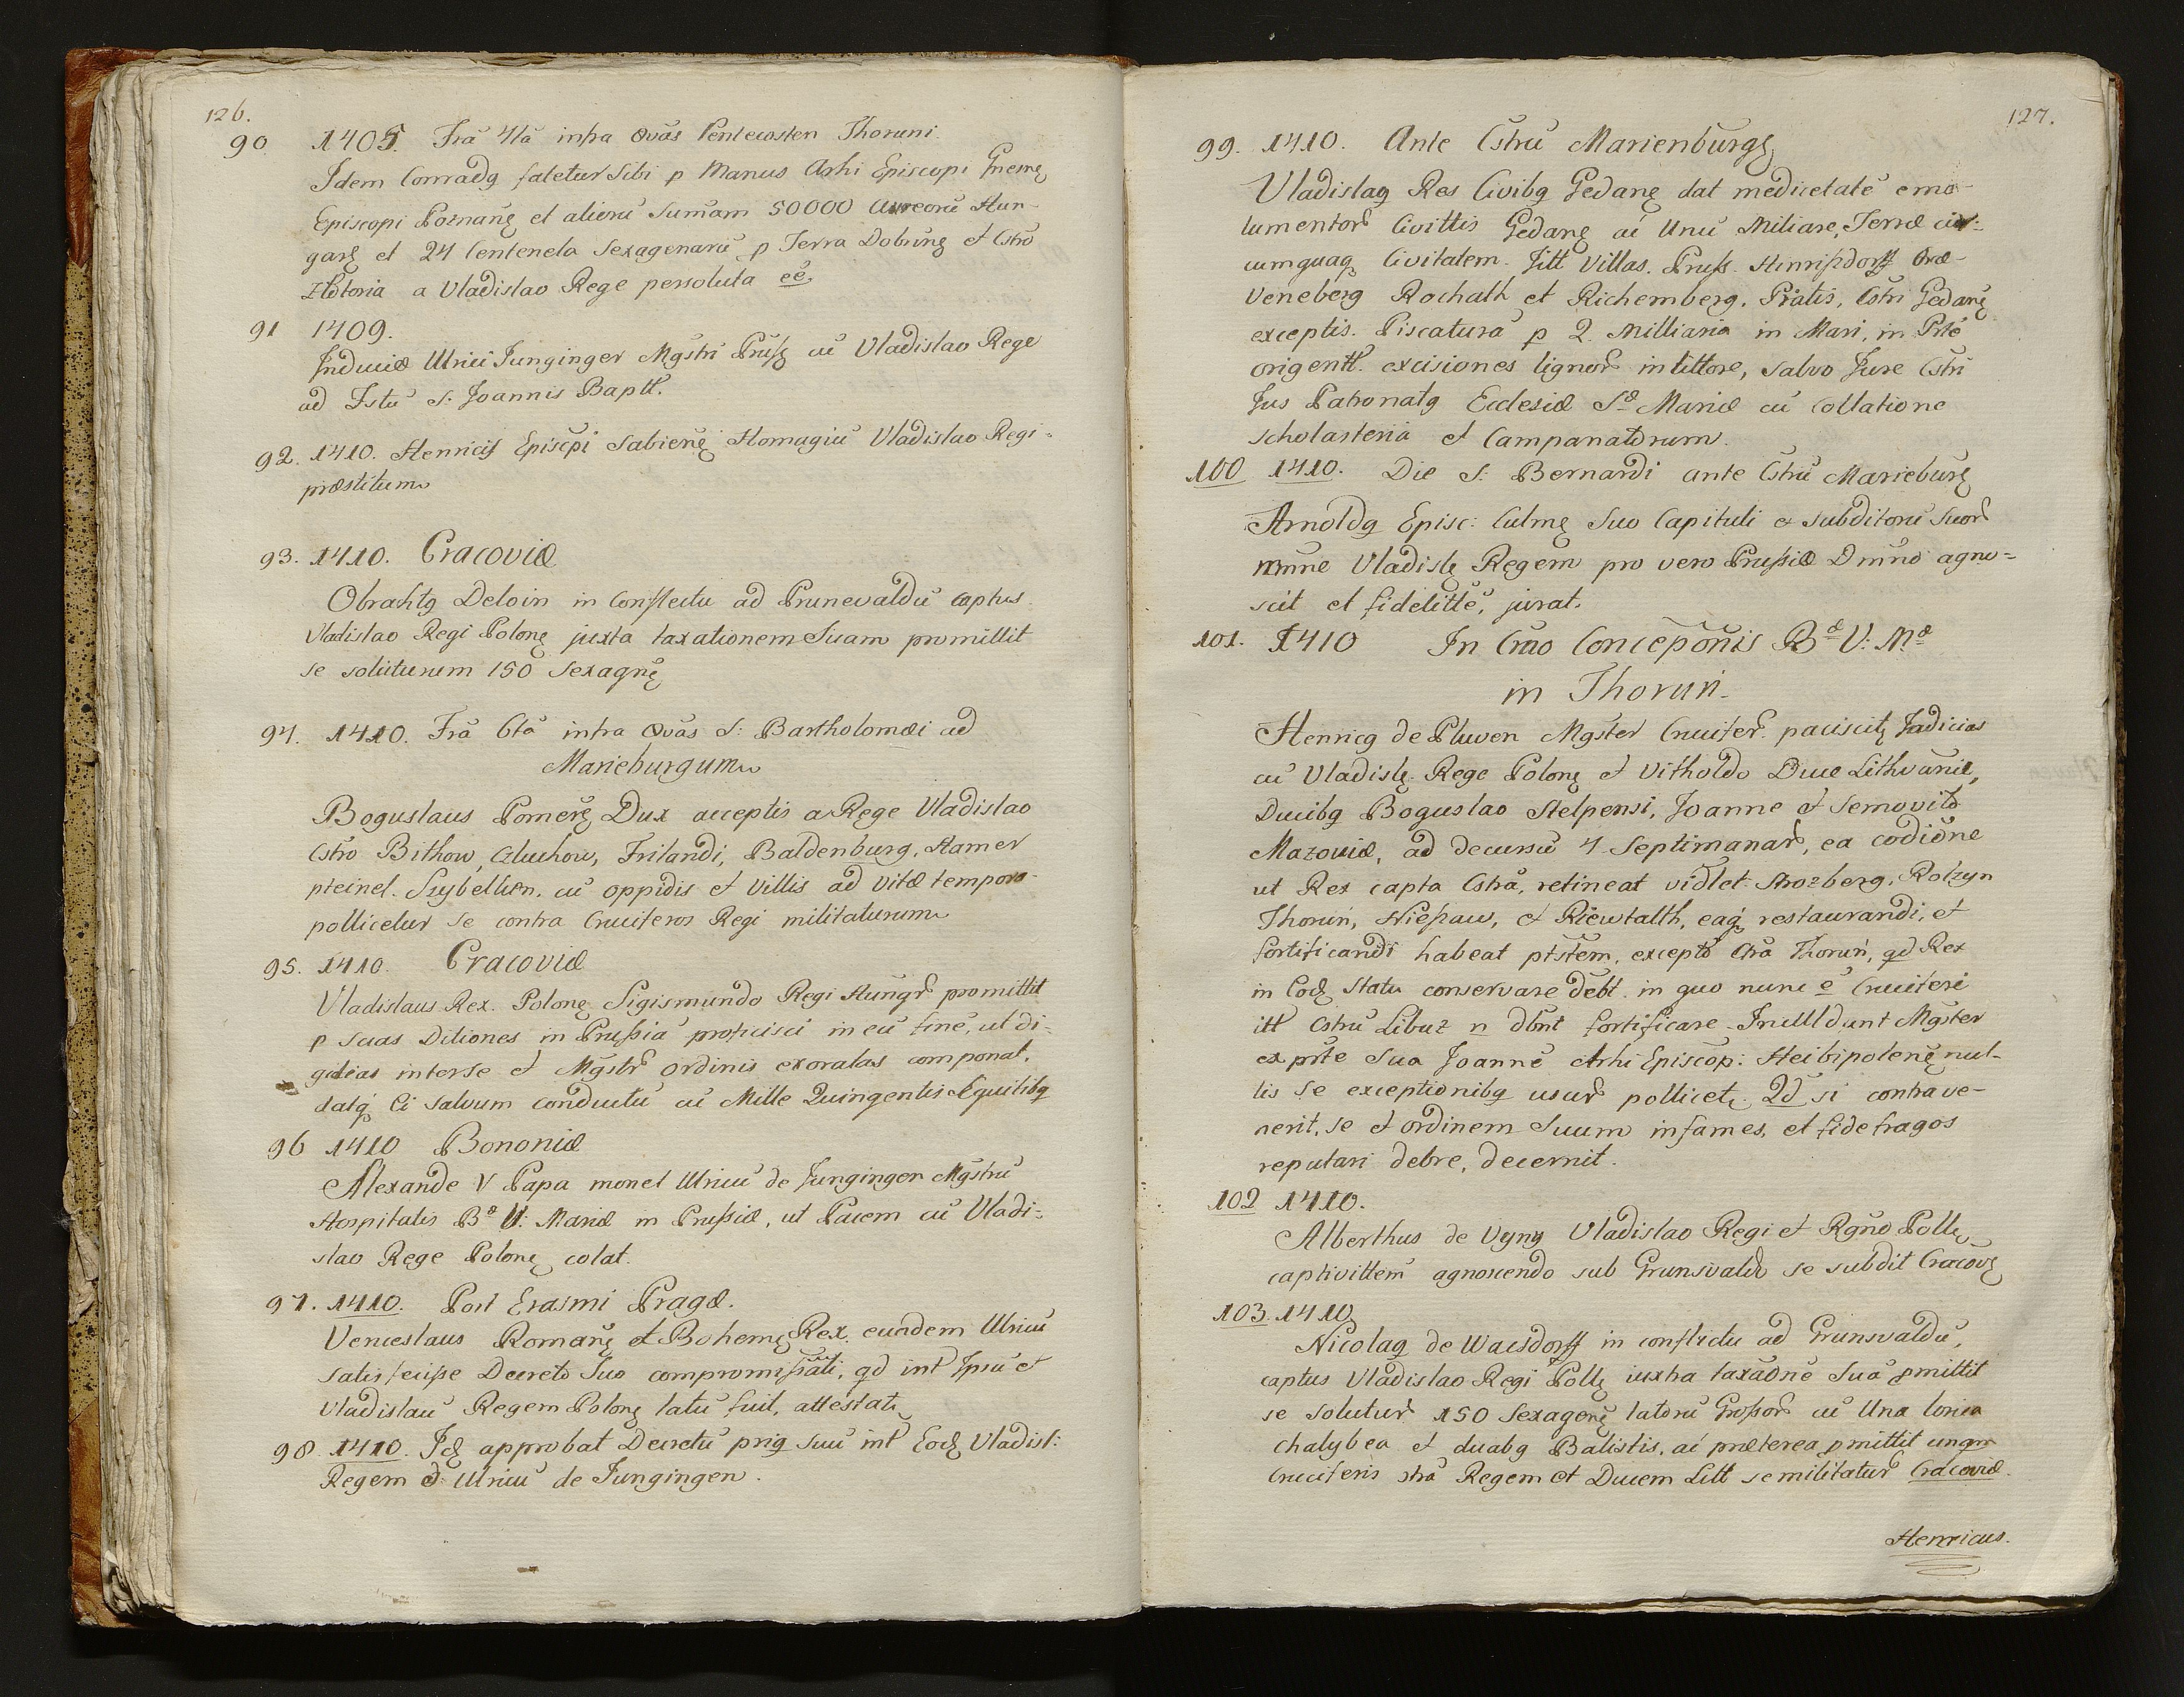 126.
90 1405. Frã 4tã infra Ovãs Pentecosten Thoruni
Idem Conradq fatetur Sibi p Manus Arhi Episcopi Gnesnę
Episcopi Poznanę et aliorũ Sumam 50000 Aureorũ Hun-
garę et 24 Centenela Sexagenarũ p Terra Dobrinę et Cstro
Zlotoria a Vladislao Rege persoluta eẽ.
91 1409.
Induciæ Ulrici Junginger Mgstri Prusę cũ Vladislao Rege
ad Fstũ S: Joannis Baptt.
92. 1410. Henrici Episcpi Sabienę Homagiũ Vladislao Regi
præstitum
93. 1410. Cracoviæ
Obrahtq Deloin in Conflectu ad Prunevaldũ captus.
Vladislao Regi Polonę juxta taxationem Suam promittit
se soluturum 150 Sexagnę
94. 1410. Frã 6tã infra Ovãs S: Bartholomæi ad
Marieburgum
Boguslaus Pomerę Dux acceptis a Rege Vladislao
Cstro Bithow, Czluchow, Frilandi, Baldenburg, Hamer
pteinel. Szybellken. cũ oppidis et Villis ad Vitæ tempora
pollicetur se contra Cruciferos Regi militaturum
95. 1410. Cracoviæ
Vladislaus Rex. Polonę Sigismundo Regi Hungr promittit
p suas Ditiones in Prußiã proficisci in eũ finẽ, ut di-
gtias inter se et Mgstr Ordinis exoratas componat.
datq Ei Salvum conductũ cũ Mille Quingentis Equitibq
96 1410 Bononiæ
Alexande V Papa monet Ulricũ de Jungingen Mgstrũ
Hospitalis Bæ V: Mariæ in Prußiæ, ut Pacem cũ Vladi-
slao Rege Polonę colat.
97. 1410. Post Erasmi Pragæ.
Venceslaus Romanę et Bohemę Rex. eundem Ulricũ
satisfecisse Decreto Suo compromißali, qd int Ipsũ et
Vladislaũ Regem Polonę latũ fuit, attestatę
98. 1410. Idę approbat Decretũ priq suũ int Eodę Vladisl:
Regem & Ulricũ de Jungingen.
127.
99. 1410. Ante Cstrũ Marienburgę
Vladislaq Rex Civibq Gedanę dat medicetatẽ emo-
lumentor Civittis Gedanę aĩ Unũ Miliare, Terræ cir-
cumquaq Civitatem. Itt Villas. Pruß. Henrißdorff Græ-
veneberg Rochath et Richemberg. Prãtis, Cstri Gedanę
exceptis. Piscaturã p 2. Milliaria in Mari, in Prtẽ
origentl. excisiones lignor in littore, salvo Jure Cstri
Jus Patronatq Ecclesiæ Sæ Mariæ cũ Collatione
Scholasteria et Campanatorum.
100 1410. Die S: Bernardi ante Cstrũ Marieburę
Arnoldq Episc: Culmę Suo Capituli et subditorũ Suor
nmine Vladislę Regem pro vero Prußiæ Dmino agno-
scit et fidelittẽ, jurat.
101. 1410 In Crao Conceponis Bæ V: Mæ
in Thoruń.
Henricq de Pluven Mgster Crucifer. paciscitę Iudicias
cũ Vladislę. Rege Polonę et Vitholdo Duce Lithvaniæ,
Ducibq Boguslao Stelpensi, Joanne et Semovito
Mazoviæ, ad decursũ 4 Septimanar, ea codiõne
ut Rex capta Cstrã, retineat vidlet. Strozberg. Rolzyn
Thoruń, Nießaw, et Riewtalth, eaq restaurandi, et
fortificandi habeat ptstem, excepto Crã Thoruń, qd Rex
in Eodę Statu conservare debt. in quo nunc ẽ Cruciferi
itt Cstrũ Libuz n dbnt fortificare. Inutll dunt Mgster
ex prte Sua Joannẽ Arhi Episcop: Heibipolenę nul-
lis se exceptionibq usur pollicetę. Qd si contrave-
nerit, se et ordinem Suum infames, et fidefragos
reputari debre, decernit.
102 1410.
Alberthus de Vyny Vladislao Regi et Rgno Pollę
captivittem agnoscendo sub Grunsvaldo se subdit Cracovę
103. 1410
Nicolaq de Wacsdorff in conflictu ad Grunsvaldũ,
captus Vladislao Regi Pollę iuxta taxãonẽ Suã pmittit
se solutur 150 Sexagenę latorũ Großor cũ Una lorica
chalybea et duabq Balistis, aĩ præterea pmittit unqm
Cruciferis strã Regem et Ducem Litt se militatur Cracoviæ.
Henricus.